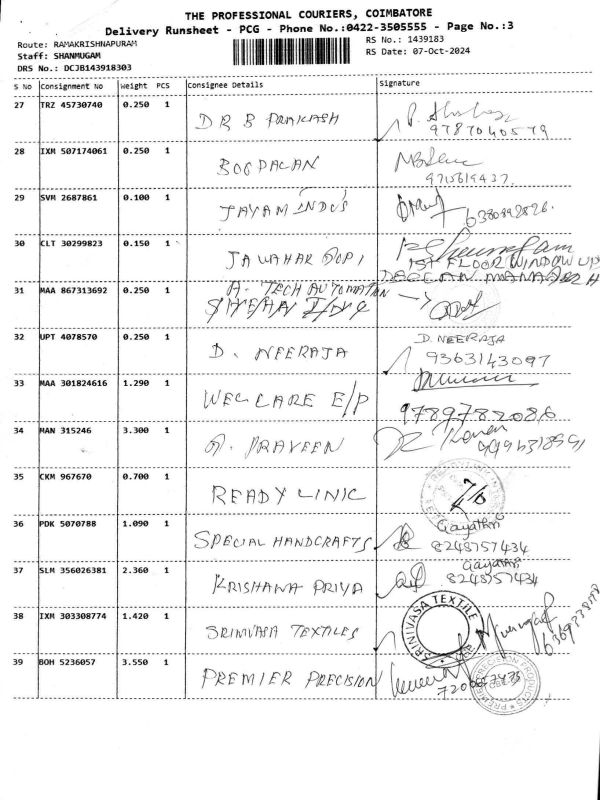 THE PROFESSIONAL COURIERS, COIMBATORE
Delivery Runsheet - PCG - Phone No.:0422-3505555 - Page No.:3
Route: RAMAKRISHNAPURAM
Staff: SHANMUGAM
DRS No.: DCJB143918303
RS No.: 1439183
RS Date: 07-Oct-2024
S No Consignment No Weight PCS Consignee Details Signature
27 TRZ 45730740 0.250 1 DR B PRAKASH
9787040579
28 IXM 507174061 0.250 1 BOOPALAN
9715619437.
29 SVM 2687861 0.100 1 JAYAM INDUS
6380892826.
30 CLT 30299823 0.150 1 JAWAHAR GOPI
1ST FLOOR WINDOW UP
31 MAA 867313692 0.250 1 A. TECH AUTOMATION
32 UPT 4078570 0.250 1 D. NEERAJA D. NEERAJA
9363143097
33 MAA 301824616 1.290 1 WELLCARE E/P
9789782086
34 MAN 315246 3.300 1 A. PRAVEEN
35 CKM 967670 0.700 1 READY LINIC
36 PDK 5070788 1.090 1 SPECIAL HANDCRAFTS Gayathri
8248757434
37 SLM 356026381 2.360 1 KRISHANA PRIYA Gayathri
8248757434
38 IXM 303308774 1.420 1 SRINIVASA TEXTILES SRINIVASA TEXTILE
39 BOH 5236057 3.550 1 PREMIER PRECISION
PREMIER PRECISION PRODUCTS